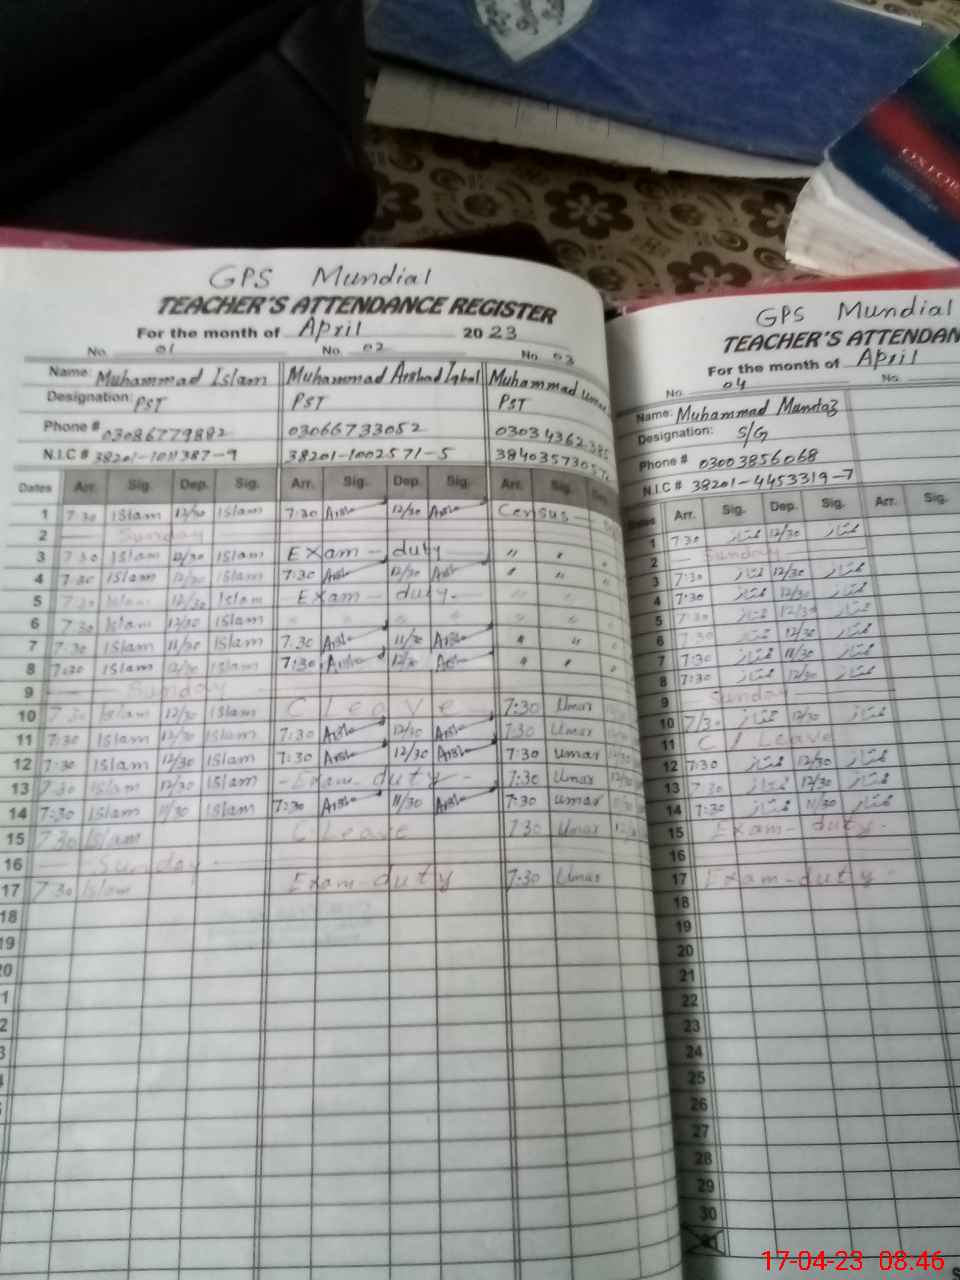 OXFOR
GPS Mundial
TEACHER'S ATTENDANCE REGISTER
For the month of April 2023
No. 01 No. 02 No. 03
Name: Muhammad Islam Muhammad Arshad Iqbal Muhammad Umar
Designation: PST PST PST
Phone # 03086779882 03066733052 03034362385
N.I.C # 38201-1011387-9 38201-1002571-5
Dates Arr. Sig. Dep. Sig. Arr. Sig. Dep. Sig. Arr. Sig.
1 7:30 Islam 12/30 Islam 7:30 12/30 Census
2 Sunday
3 7:30 Islam 12/30 Islam Exam - duty " "
4 7:30 Islam 12/30 Islam 7:30 12/30 " "
5 7:30 Islam 12/30 Islam - Exam - duty -
6 7:30 Islam 12/30 Islam " " " "
7 7:30 Islam 11/30 Islam 7:30 11/30 " "
8 7:30 Islam 12/30 Islam 7:30 12/30 " "
9 Sunday
10 7:30 Islam 12/30 Islam C Leave 7:30 Umar
11 7:30 Islam 12/30 Islam 7:30 12/30 7:30 Umar
12 7:30 Islam 12/30 Islam 7:30 12/30 7:30 Umar
13 7:30 Islam 12/30 Islam - Exam - duty - 7:30 Umar
14 7:30 Islam 11/30 Islam 7:30 11/30 7:30 Umar
15 7:30 Islam C Leave 7:30 Umar
16 Sunday
17 7:30 Islam Exam - duty 7:30 Umar
18
19
20
GPS Mundial
TEACHER'S ATTENDAN
For the month of April
No. 04 No.
Name: Muhammad Mumtaz
Designation: S/G
Phone # 03003856068
N.I.C # 38201-4453319-7
Dates Arr. Sig. Dep. Sig. Arr. Sig.
1 7:30 ممتاز 12/30 ممتاز
2 Sunday
3 7:30 ممتاز 12/30 ممتاز
4 7:30 ممتاز 12/30 ممتاز
5 7:30 ممتاز 12/30 ممتاز
6 7:30 ممتاز 12/30 ممتاز
7 7:30 ممتاز 11/30 ممتاز
8 7:30 ممتاز 12/30 ممتاز
9 Sunday
10 7/30 ممتاز 12/30 ممتاز
11 C / Leave
12 7:30 ممتاز 12/30 ممتاز
13 7:30 ممتاز 12/30 ممتاز
14 7:30 ممتاز 11/30 ممتاز
15 Exam - duty -
16
17 Exam - duty -
18
19
20
21
22
23
24
25
26
27
28
29
30
17-04-23 08.46